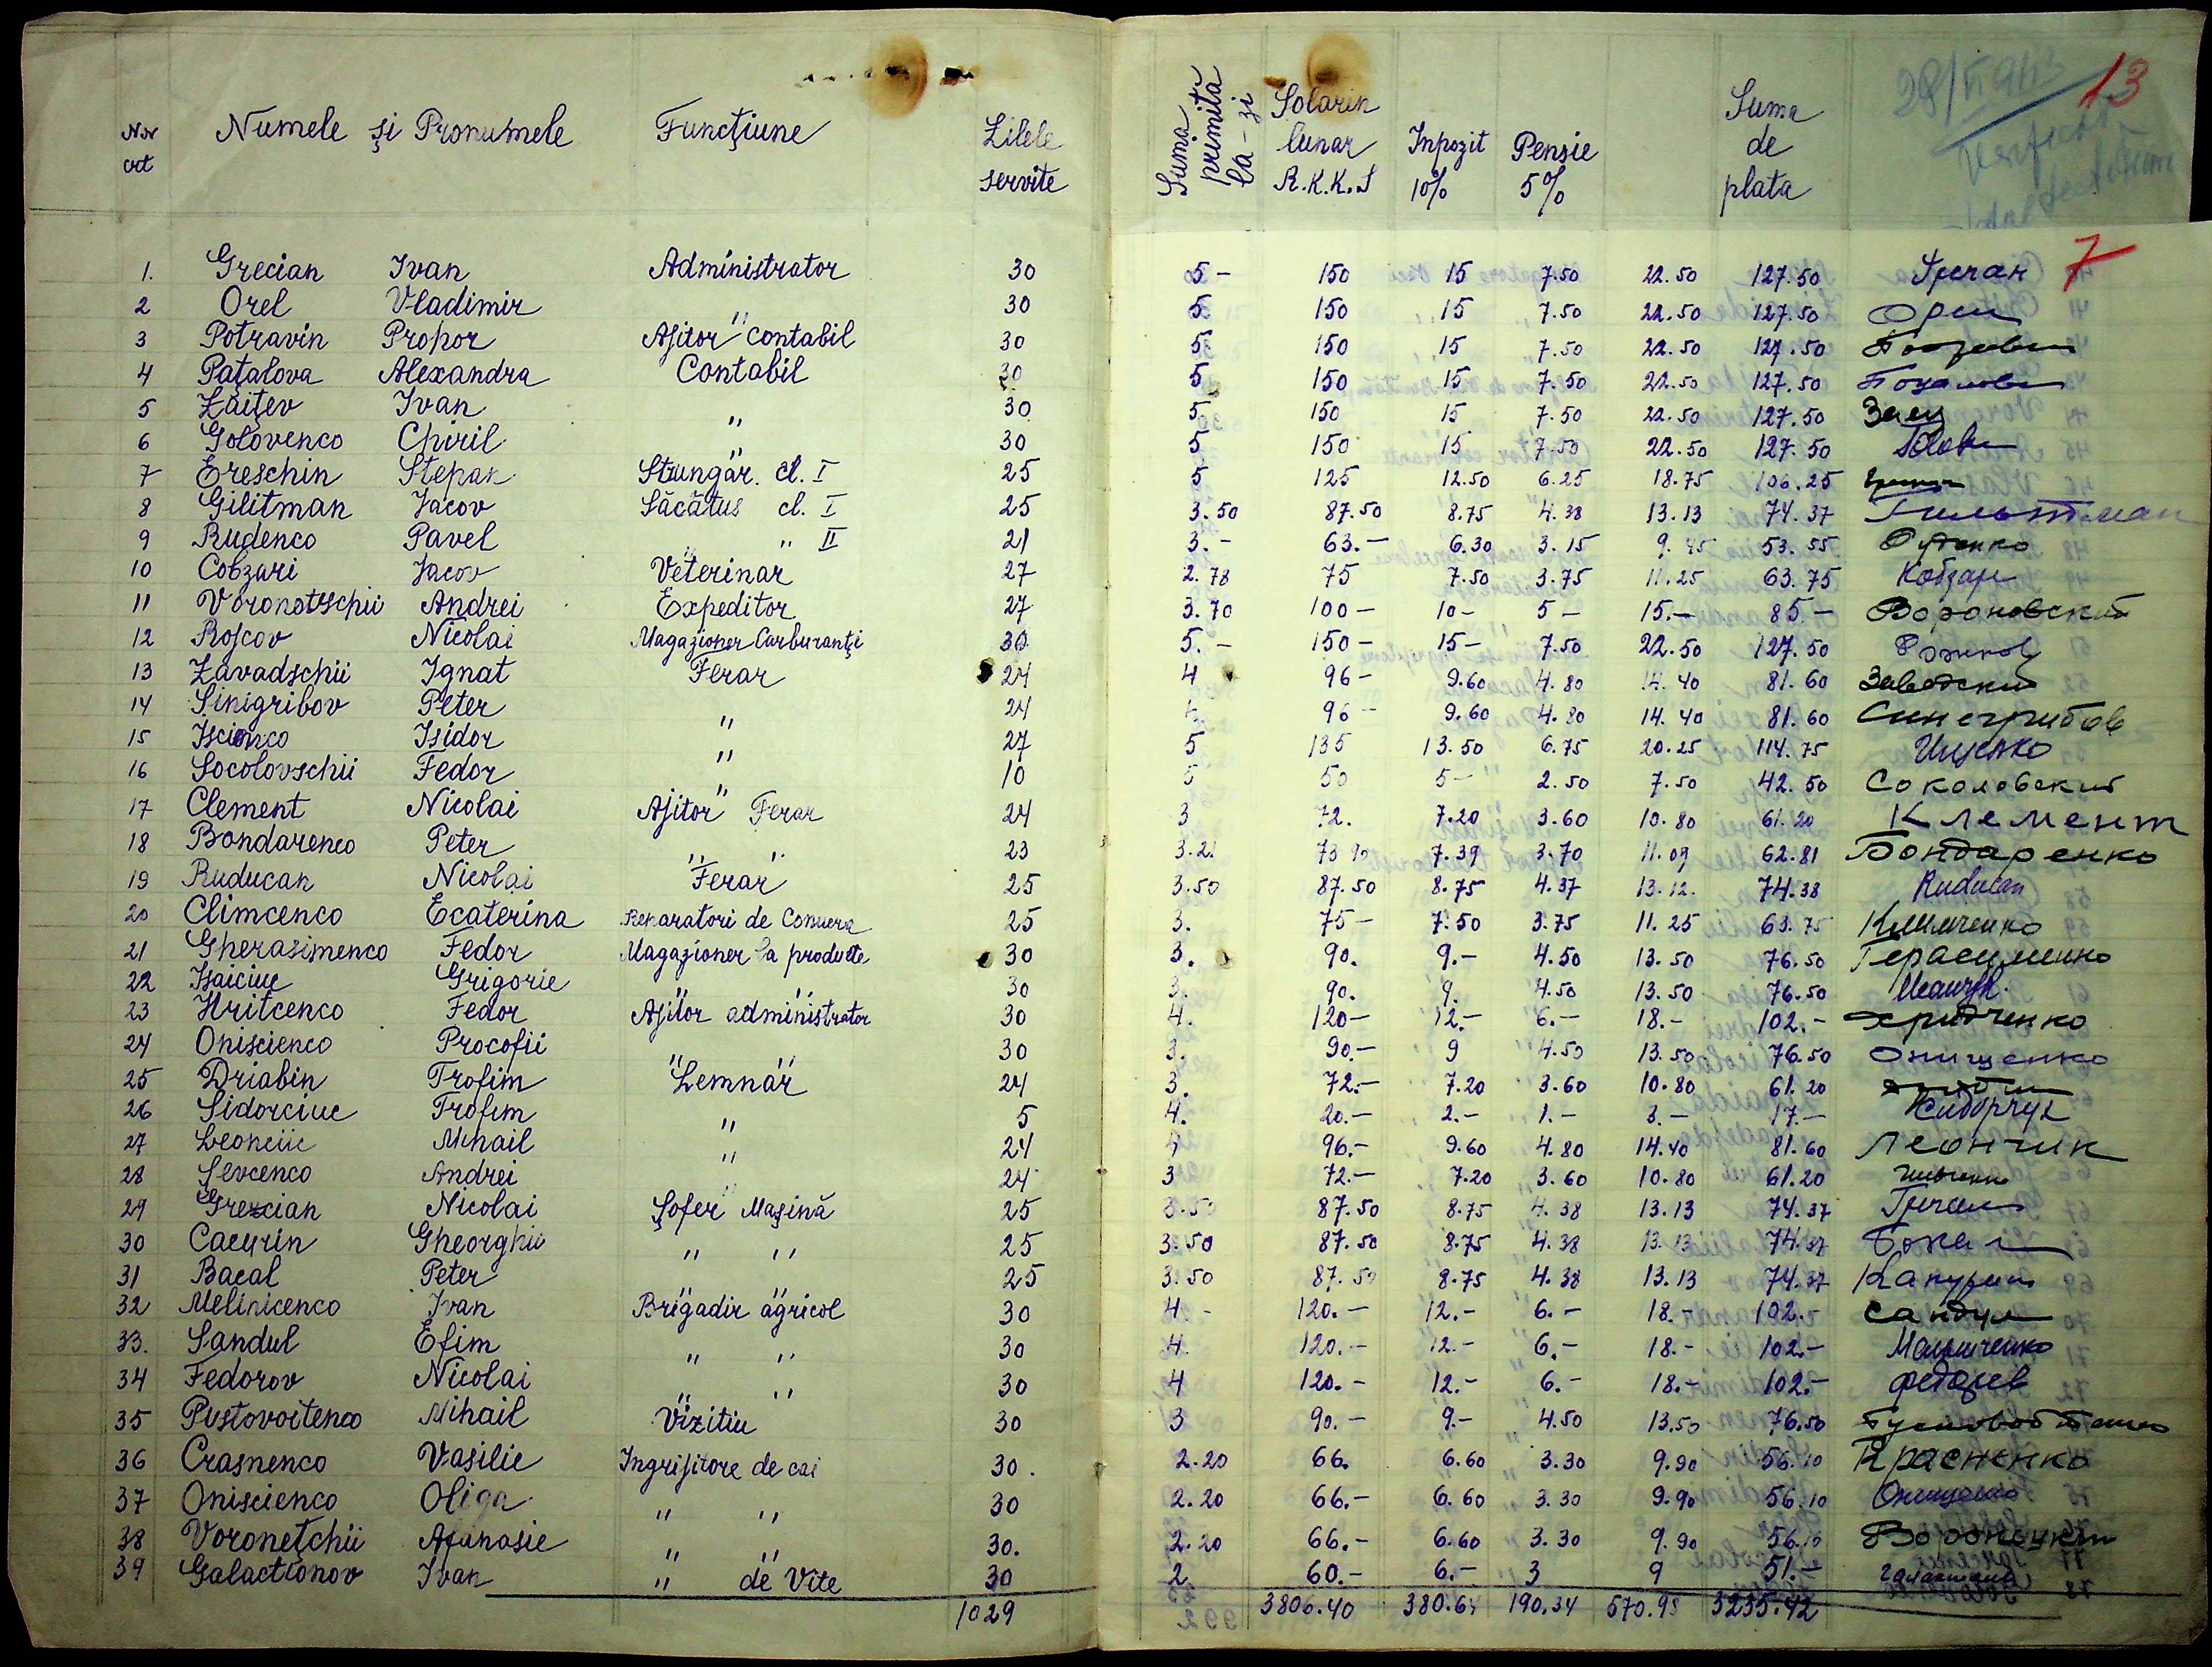 Nr crt Numele și Pronumele Funcţiune Zilele servite Suma primită la-zi Solarin lunar R.K.K.S Inpozit 10% Pensie 5% Suma de plata 28/VI 943 13
7
1. Grecian Ivan Administrator 30 5- 150 15 7.50 22.50 127.50 Гречан
2 Orel Vladimir " 30 5 150 15 7.50 22.50 127.50 Орел
3 Potravin Prohor Ajitor contabil 30 5 150 15 7.50 22.50 127.50
4 Paţalova Alexandra Contabil 30 5 150 15 7.50 22.50 127.50 Поцалова
5 Zaiţev Ivan " 30 5 150 15 7.50 22.50 127.50 Заец
6 Golovenco Chiril " 30 5 150 15 7.50 22.50 127.50
7 Ereschin Stepan Strungăr. cl. I 25 5 125 12.50 6.25 18.75 106.25
8 Gilitman Jacov Lăcătus cl. I 25 3.50 87.50 8.75 4.38 13.13 74.37 Гильтман
9 Rudenco Pavel " " II 21 3.- 63.- 6.30 3.15 9.45 53.55 Руденко
10 Cobzari Jacov Veterinar 27 2.78 75 7.50 3.75 11.25 63.75 Кобзарь
11 Voronotschii Andrei Expeditor 27 3.70 100- 10- 5- 15.- 85- Вороновский
12 Rojcov Nicolai Magazioner Carburanţi 30 5.- 150- 15- 7.50 22.50 127.50 Рожков
13 Zavadschii Ignat Ferar 24 4 96- 9.60 4.80 14.40 81.60 Заводский
14 Sinigribov Peter " 24 4 96- 9.60 4.80 14.40 81.60 Синегрибов
15 Iscienco Isidor " 27 5 135 13.50 6.75 20.25 114.75 Ищенко
16 Socolovschii Fedor " 10 5 50 5- 2.50 7.50 42.50 Соколовский
17 Clement Nicolai Ajitor Ferar 24 3 72. 7.20 3.60 10.80 61.20 Клемент
18 Bondarenco Peter " " 23 3.21 73.90 7.39 3.70 11.09 62.81 Бондаренко
19 Ruducan Nicolai Ferar 25 3.50 87.50 8.75 4.37 13.12. 74.38 Ruducan
20 Climcenco Ecaterina Reparatori de Conuera 25 3. 75- 7.50 3.75 11.25 63.75 Климченко
21 Gherasimenco Fedor Magazioner la producte 30 3. 90. 9.- 4.50 13.50 76.50 Герасименко
22 Isaiciuc Grigorie " " 30 3. 90. 9. 4.50 13.50 76.50 Исайчук
23 Hritcenco Fedor Ajitor administrator 30 4. 120- 12.- 6.- 18.- 102.- Хридченко
24 Oniscienco Procofii " " 30 3. 90.- 9 4.50 13.50 76.50 Онищенко
25 Driabin Trofim Lemnăr 24 3. 72.- 7.20 3.60 10.80 61.20
26 Sidorciuc Trofim " 5 4. 20.- 2.- 1.- 3.- 17.- Сидорчук
27 Leonciic Mihail " 24 4 96.- 9.60 4.80 14.40 81.60 Леончик
28 Sevcenco Andrei " 24 3 72.- 7.20 3.60 10.80 61.20
29 Grecian Nicolai Șofer Mașină 25 3.50 87.50 8.75 4.38 13.13 74.37 Гречан
30 Cacurin Gheorghii " " 25 3.50 87.50 8.75 4.38 13.13 74.37 Бокал
31 Bacal Peter " " 25 3.50 87.50 8.75 4.38 13.13 74.37 Капурин
32 Melinicenco Ivan Brigadir agricol 30 4- 120.- 12.- 6.- 18.- 102.- Сандул
33. Sandul Efim " " 30 4. 120.- 12.- 6.- 18.- 102.- Мельниченко
34 Fedorov Nicolai " " 30 4 120.- 12.- 6.- 18.- 102.- Федорев
35 Pustovoitenco Mihail Vizitiu 30 3 90.- 9.- 4.50 13.50 76.50 Пустовойтенко
36 Crasnenco Vasilie Ingrijitore de cai 30. 2.20 66. 6.60 3.30 9.90 56.10 Красненко
37 Oniscienco Oliga " " 30 2.20 66.- 6.60 3.30 9.90 56.10 Онищенко
38 Voroneţchii Afanasie " " 30. 2.20 66.- 6.60 3.30 9.90 56.10
39 Galactionov Ivan " de Vite 30 2 60.- 6.- 3 9 51.-
1029 3806.40 380.64 190.34 570.98 3235.42